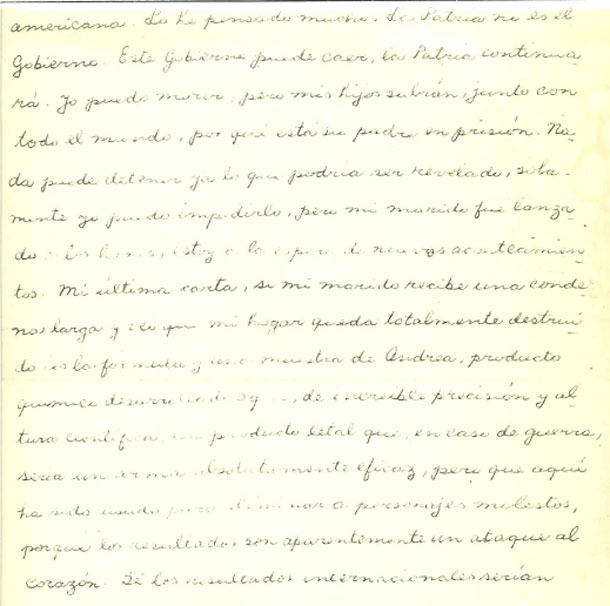 americana. Lo he pensado mucho. La Patria no es el
Gobierno. Este Gobierno puede caer, la Patria continua
rá. Yo puedo morir, pero mis hijos sabrán, junto con
todo el mundo, por qué está su padre en prisión. Na-
da puede detener ya lo que podría ser revelado, sola-
mente yo puedo impedirlo, pero mi marido fue lanza-
do a los leones, estoy a la espera de nuevos acontecimien-
tos. Mi última carta, si mi marido recibe una conde-
na larga y veo que mi hogar queda totalmente destrui-
do es la fórmula y una muestra de Andrea, producto
químico desarrollado de increíble precisión y al-
tura científica, un producto letal que, en caso de guerra,
sería un arma absolutamente eficaz, pero que aquí
ha sido usado para eliminar a personajes molestos,
porque los resultados son aparentemente un ataque al
corazón. Sé los resultados internacionales serían